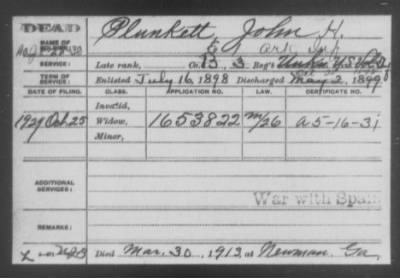 DEAD
Plunkett John H.
NAME OF SOLDIER:
E 2 Ark Inf
SERVICE:
Late rank, Co. B, 3 Reg't U.S. Vol Inf
TERM OF SERVICE:
Enlisted July 16, 1898 Discharged May 2, 1899
DATE OF FILING. CLASS. APPLICATION NO. LAW. CERTIFICATE NO.
Invalid,
1927 Oct 25 Widow, 1653822 A 5-16-31
Minor,
ADDITIONAL SERVICES:
War with Spain
REMARKS:
Died Mar. 30, 1913, at Newman, Ga